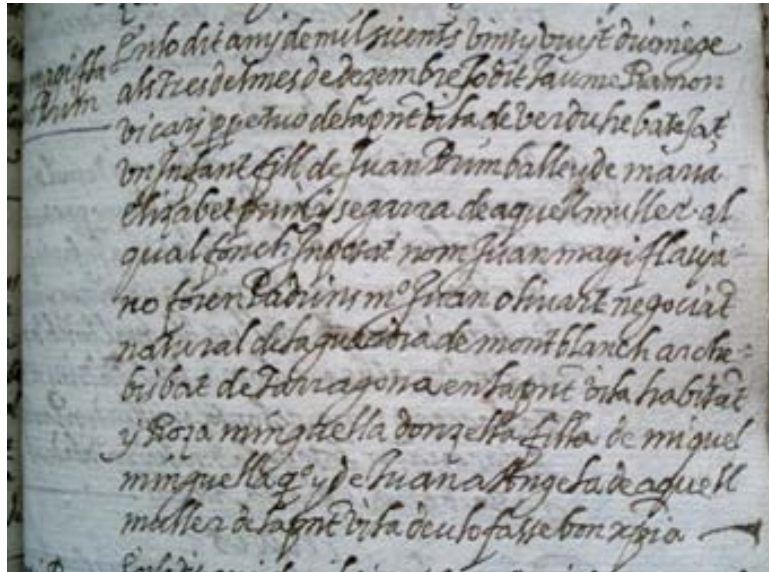 magi fla
Prim
En lo dit any de mil sicents vint y vuyt diumēge
als tres del mes de dezembre Jo dit Jaume Ramon
vicari ppetuo de la pnt vila de verdu he batejat
vn Infant fill de Juan Prim balle y de maria
Elizabet prim y segarra de aquell muller al
qual fonch Inposat nom Juan magi flavia
no foren Padrins mº Juan oliuart negociāt
natural de la de montblanch arche
bisbat de Tarragona en la pnt vila habitāt
y Roza minguella donzella filla de miquel
minguella qº y de Juana Angela de aquell
muller de la pnt vila deu lo fasse bon xpia